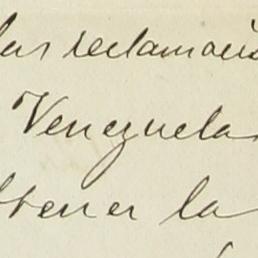 las reclamacio
Venezuela
btener la